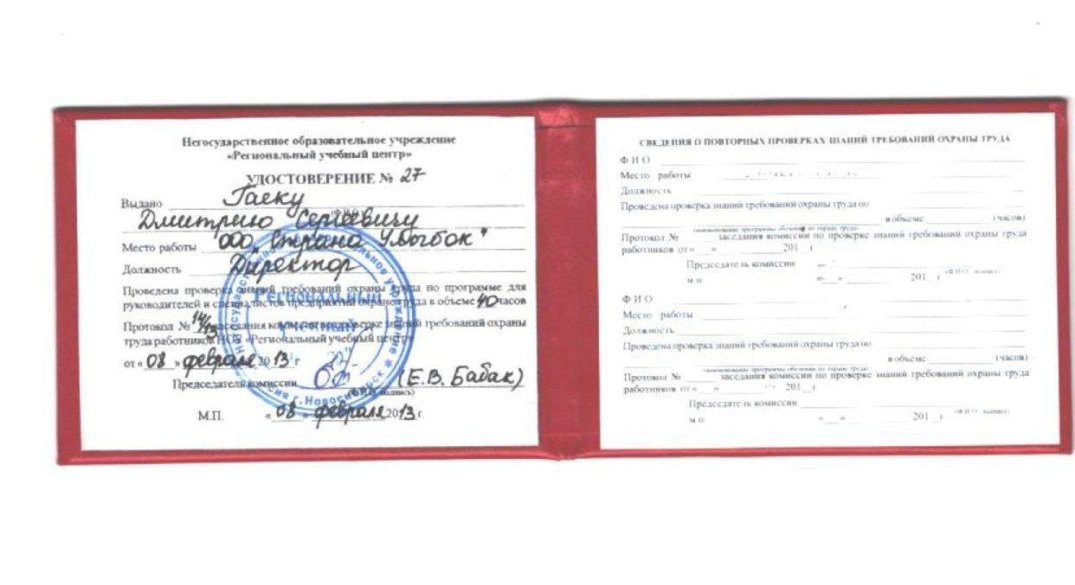 Негосударственное образовательное учреждение
«Региональный учебный центр»
УДОСТОВЕРЕНИЕ № 27
Выдано Гаеку
Дмитрию Сергеевичу
Место работы ООО „Страна Улыбок"
Должность Директор
Проведена проверка знаний требований охраны труда по программе для
руководителей и специалистов предприятий охраны труда в объеме 40 часов
Протокол № 14/13 заседания комиссии по проверке знаний требований охраны
труда работников НОУ «Региональный учебный центр»
от « 08 » февраля 2013 г
Председатель комиссии (Е.В. Бабак)
М.П. « 08 » февраля 2013 г.
Региональный
учебный
СВЕДЕНИЯ О ПОВТОРНЫХ ПРОВЕРКАХ ЗНАНИЙ ТРЕБОВАНИЙ ОХРАНЫ ТРУДА
Ф И О
Место работы
Должность
Проведена проверка знаний требований охраны труда по
в объеме (часов)
(наименование программы обучения по охране труда)
Протокол № заседания комиссии по проверке знаний требований охраны труда
работников от « » 201 г
Председатель комиссии
(Ф.И.О. подпись)
м.п. « » 201 г
Ф И О
Место работы
Должность
Проведена проверка знаний требований охраны труда по
в объеме (часов)
(наименование программы обучения по охране труда)
Протокол № заседания комиссии по проверке знаний требований охраны труда
работников от « » 201 г
Председатель комиссии
(Ф.И.О. подпись)
м.п. « » 201 г